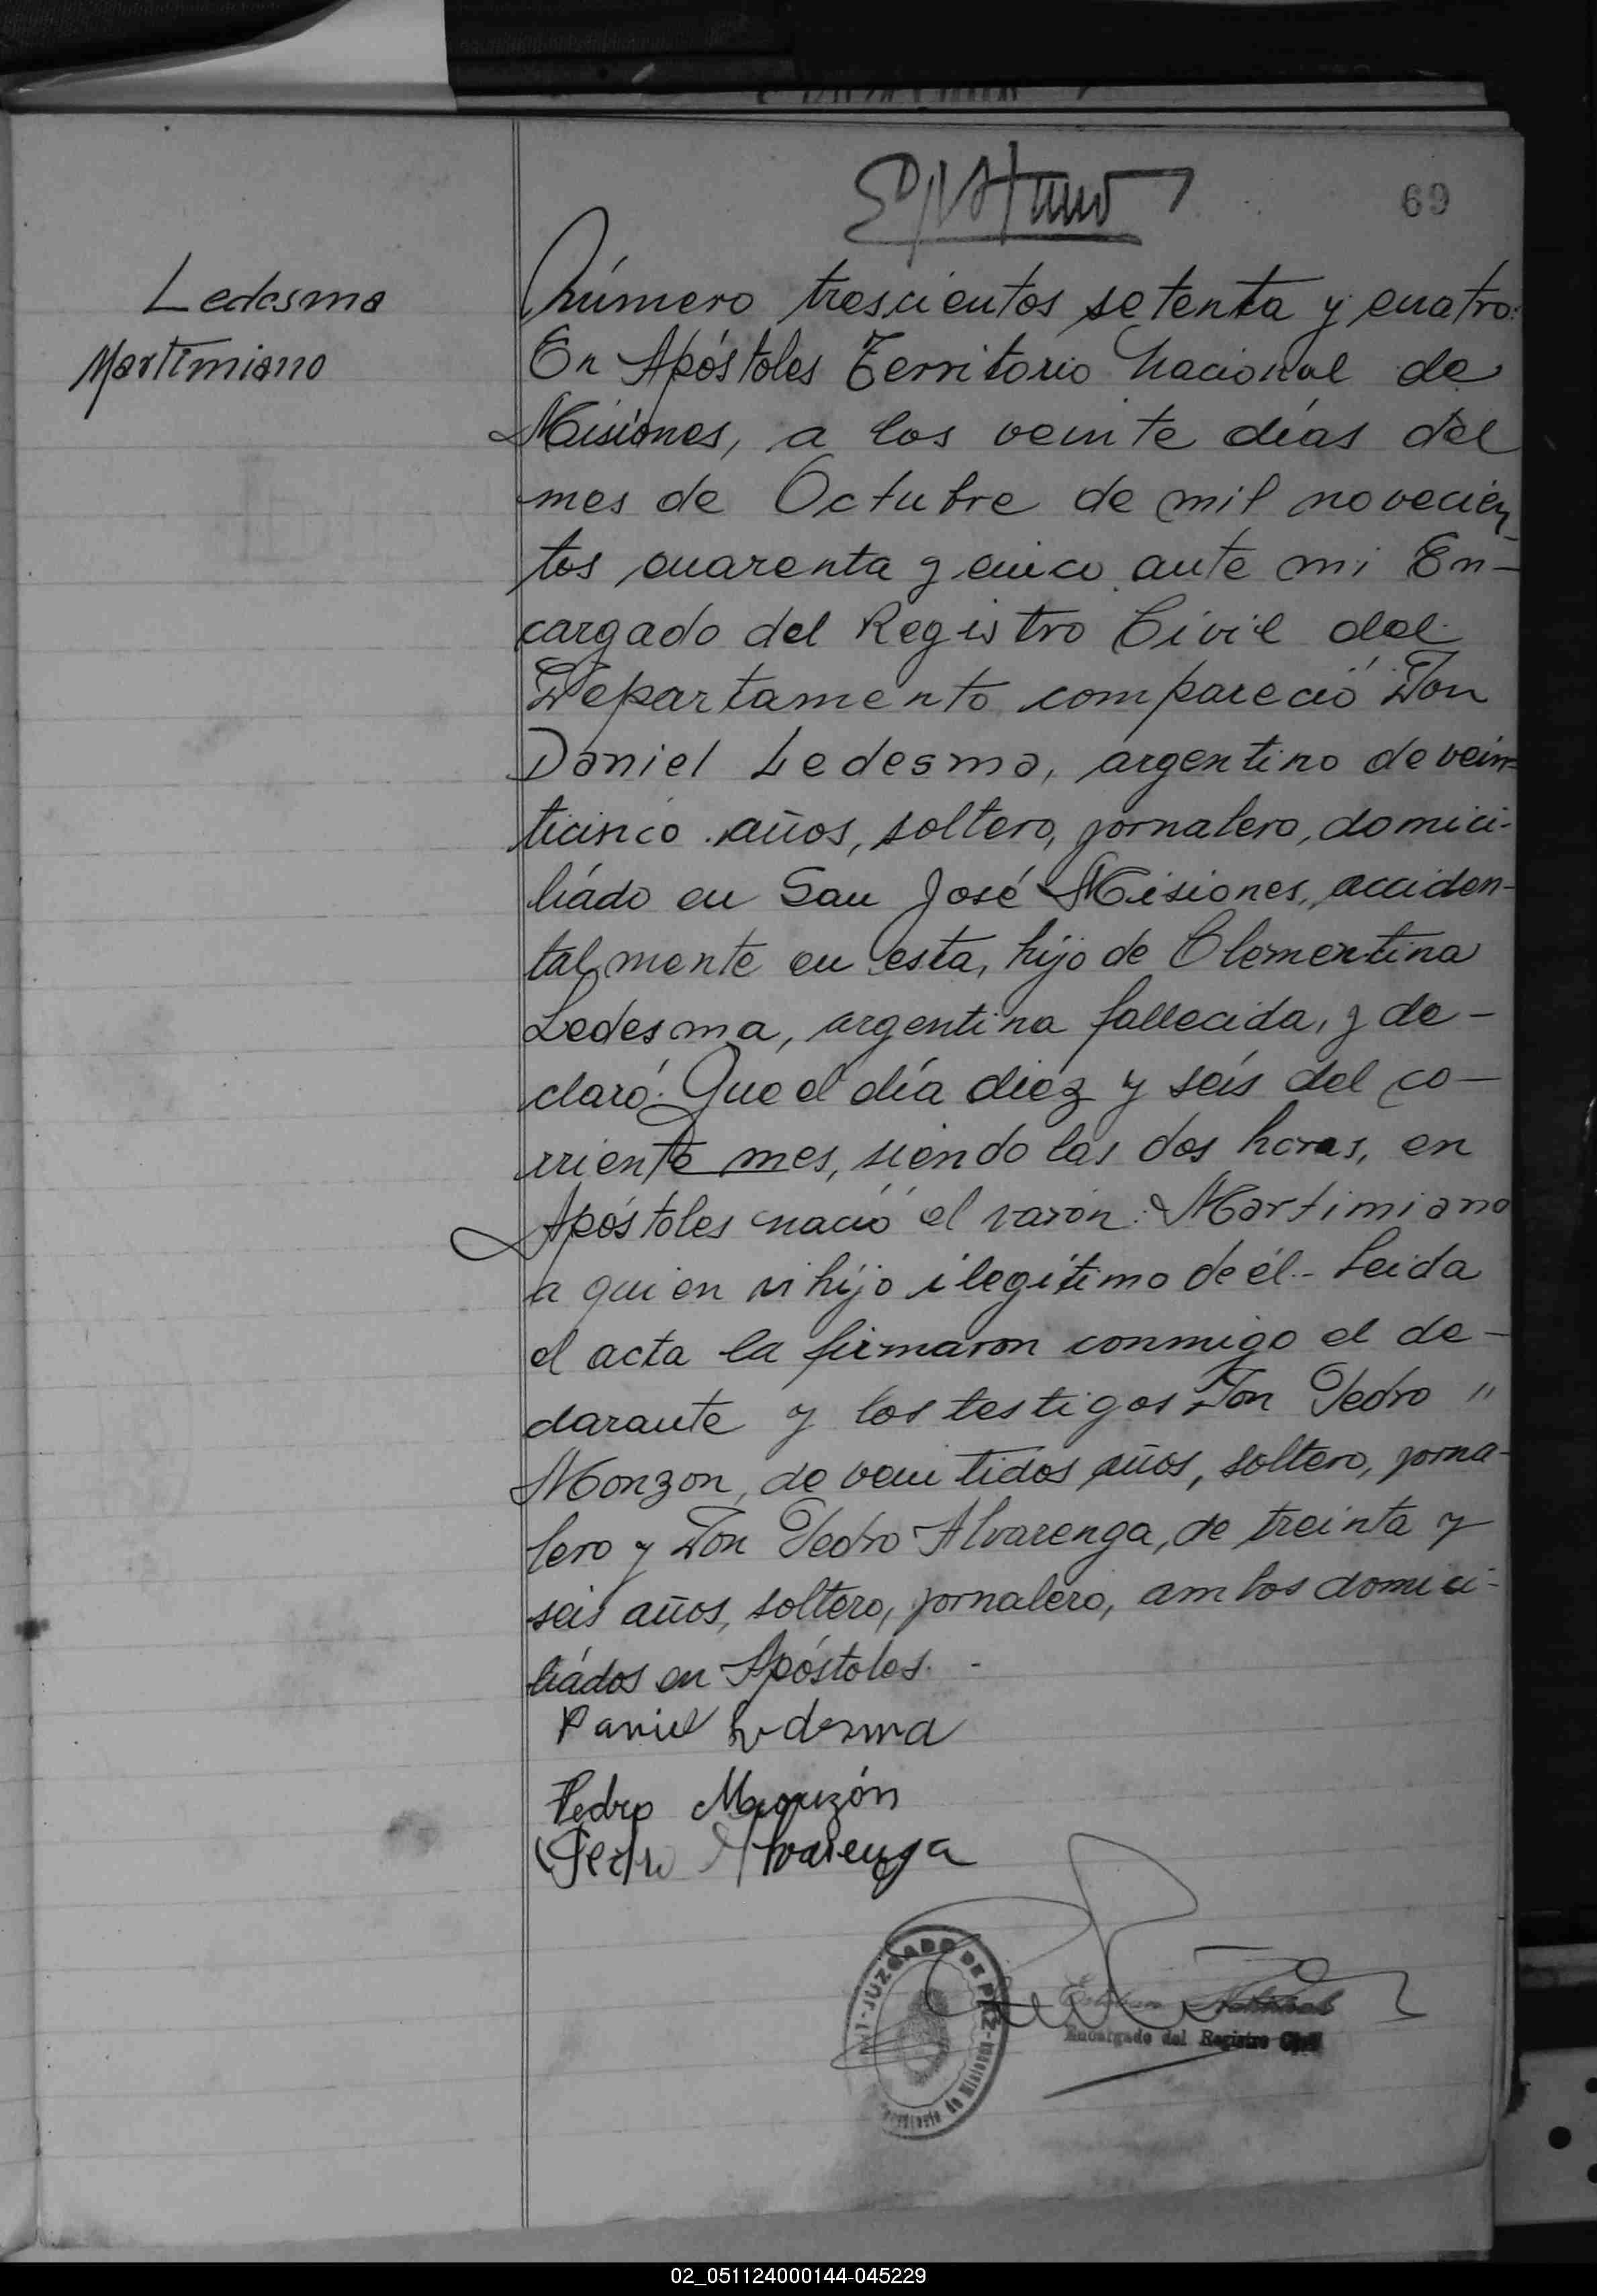 69
Ledesma
Martimiano
Número trescientos setenta y cuatro:
En Apóstoles Territorio Nacional de
Misiones, a los veinte días del
mes de Octubre de mil novecien
tos cuarenta y cinco ante mi En-
cargado del Registro Civil del
Departamento compareció Don
Daniel Ledesma, argentino de vein-
ticinco años, soltero, jornalero, domici-
liádo en San José Misiones, acciden-
talmente en esta, hijo de Clementina
Ledesma, argentina fallecida, y de-
claró: Que el día diez y seis del co-
rriente mes, siendo las dos horas, en
Apóstoles nació el varón: Martimiano
a quien vi hijo ilegítimo de él.- Leida
el acta la firmaron conmigo el de-
clarante y los testigos Don Pedro "
Monzon, de veintidos años, soltero, jorna-
lero y Don Pedro Alvarenga, de treinta y
seis años, soltero, jornalero, ambos domici-
liádos en Apóstoles. -
Daniel Ledesma
Pedro Monzón
Pedro Alvarenga
JUZGADO DE PAZ
Encargado del Registro Civil
02_051124000144-045229